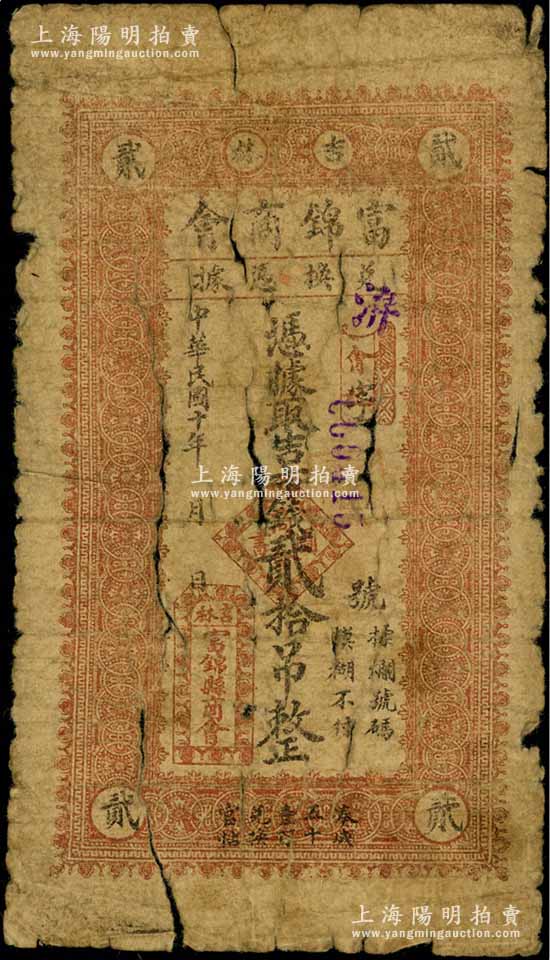 上海陽明拍賣
www.yangmingauction.com
貳 吉林 貳
富錦商會
兌換憑據
濟
字
號
憑據取吉錢貳拾吊整
中華民國十年 月 日
擦爛號碼
模糊不付
上海陽明拍賣
www.yangmingauction.com
吉林
富錦縣商會
貳 貳
湊成
五十
壹百
兌換
官帖
上海陽明拍賣
www.yangmingauction.com